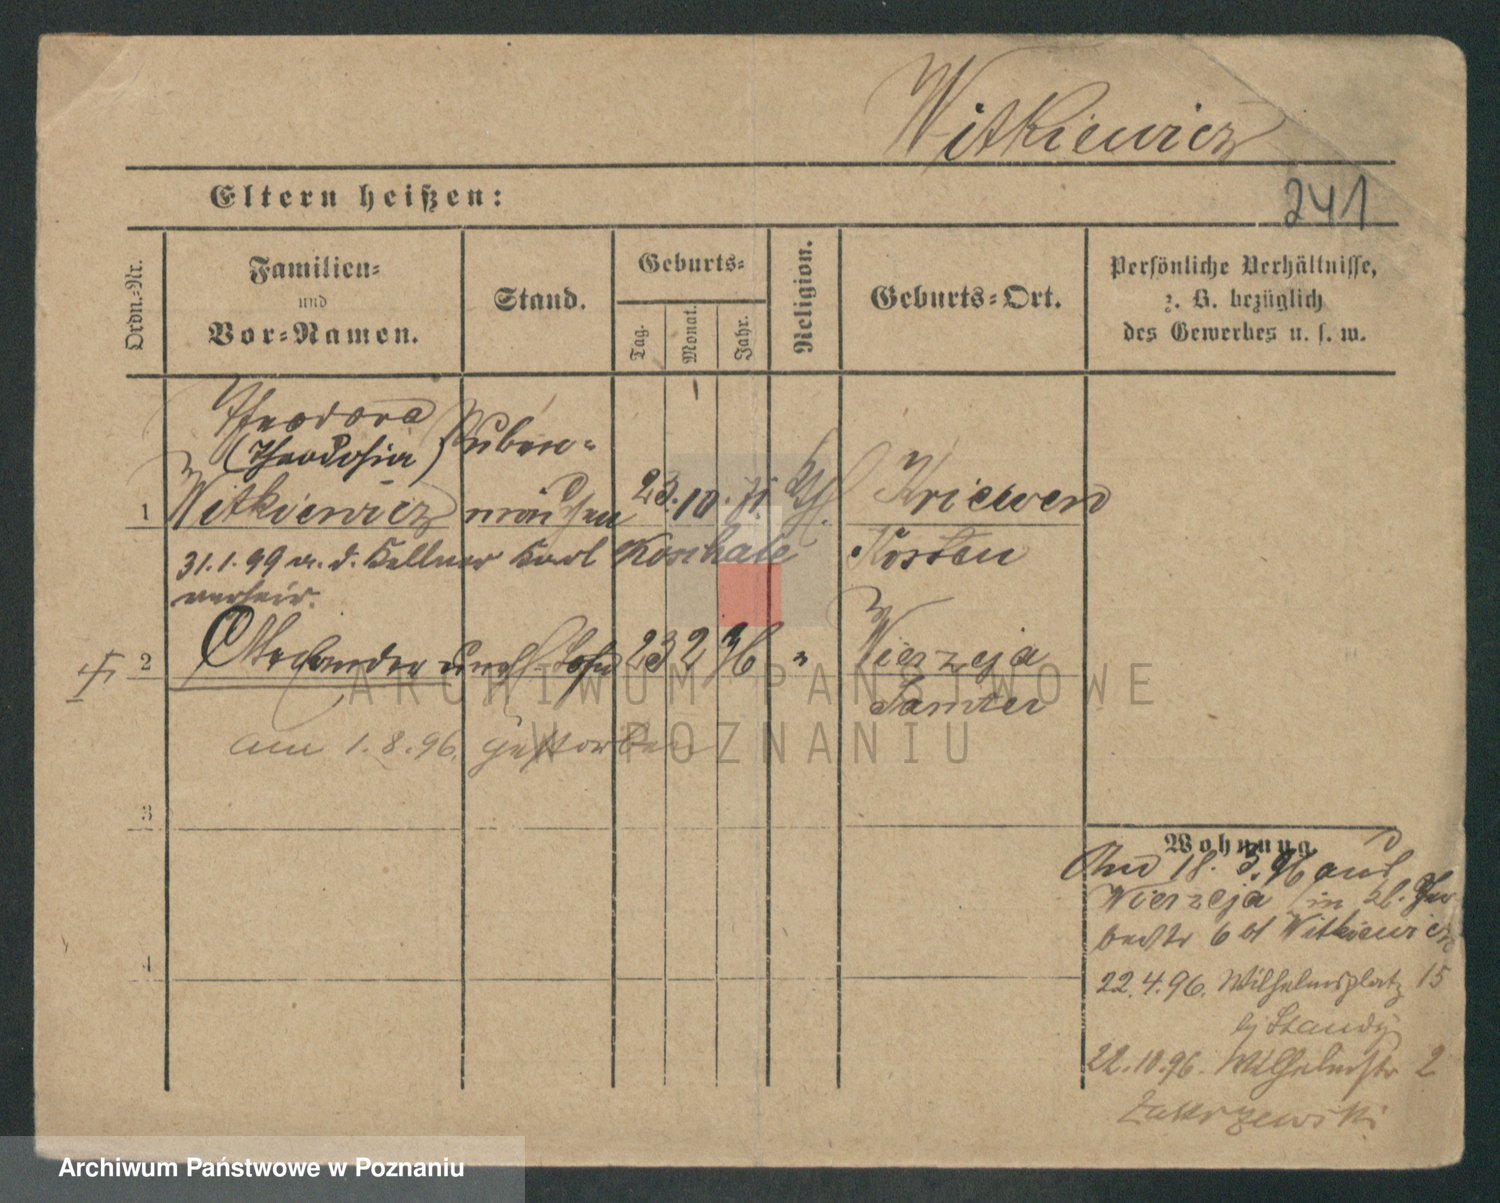 Witkiewicz
Eltern heißen:
241
Ordn.-Nr.
Familien-
und
Vor-Namen.
Stand.
Geburts-
Tag.
Monat.
Jahr.
Religion.
Geburts-Ort.
Persönliche Verhältnisse,
z. B. bezüglich
des Gewerbes u. s. w.
Theodora
(Theodosia)
1 Witkiewicz 23. 10. 71. Kriewen
31.1.99 m. d. Kellner Karl Koschale Kosten
verheir.
2 Sohn 23 2 96 " Wierzeja
Samter
am 1.8.96. gestorben
3
4
Wohnung
18. 3. 96 aus
Wierzeja in
6 bt Witkiewicz
22.4.96. Wilhelmsplatz 15
bj
22.10.96. Wilhelmstr 2
Zakrzewski
ARCHIWUM PAŃSTWOWE
W POZNANIU
Archiwum Państwowe w Poznaniu